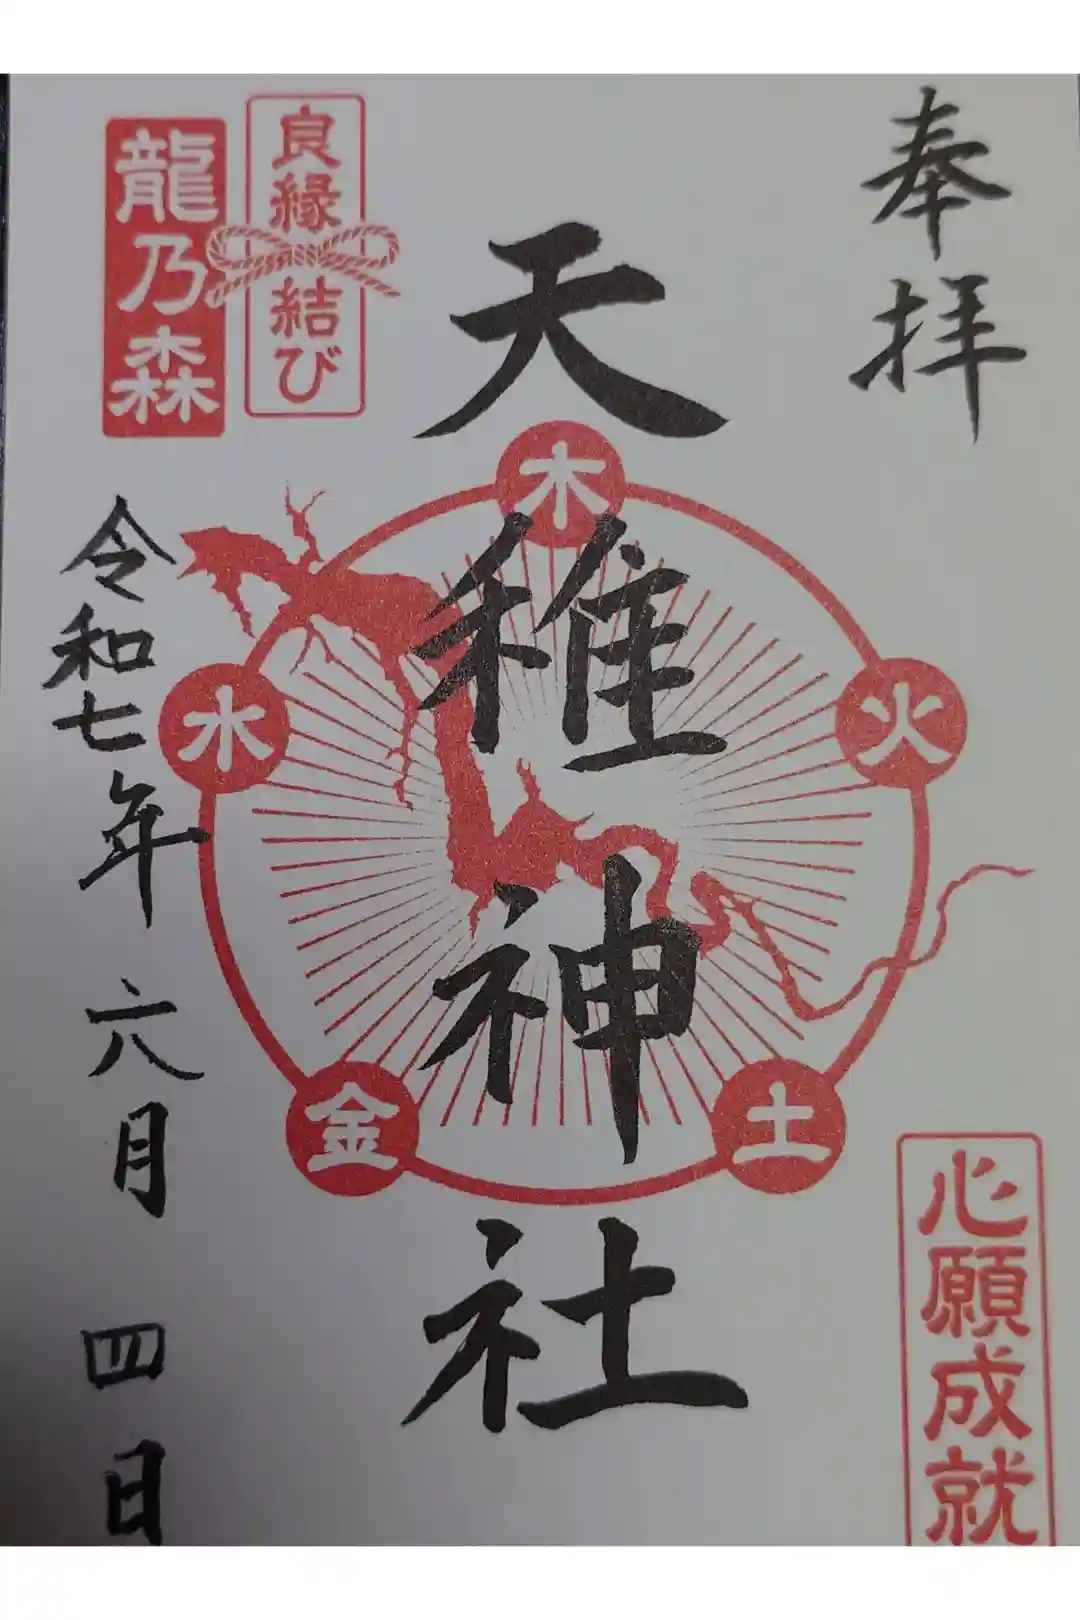 奉拝
天稚神社
良縁結び
龍乃森
令和七年六月四日
木
火
土
金
水
心願成就